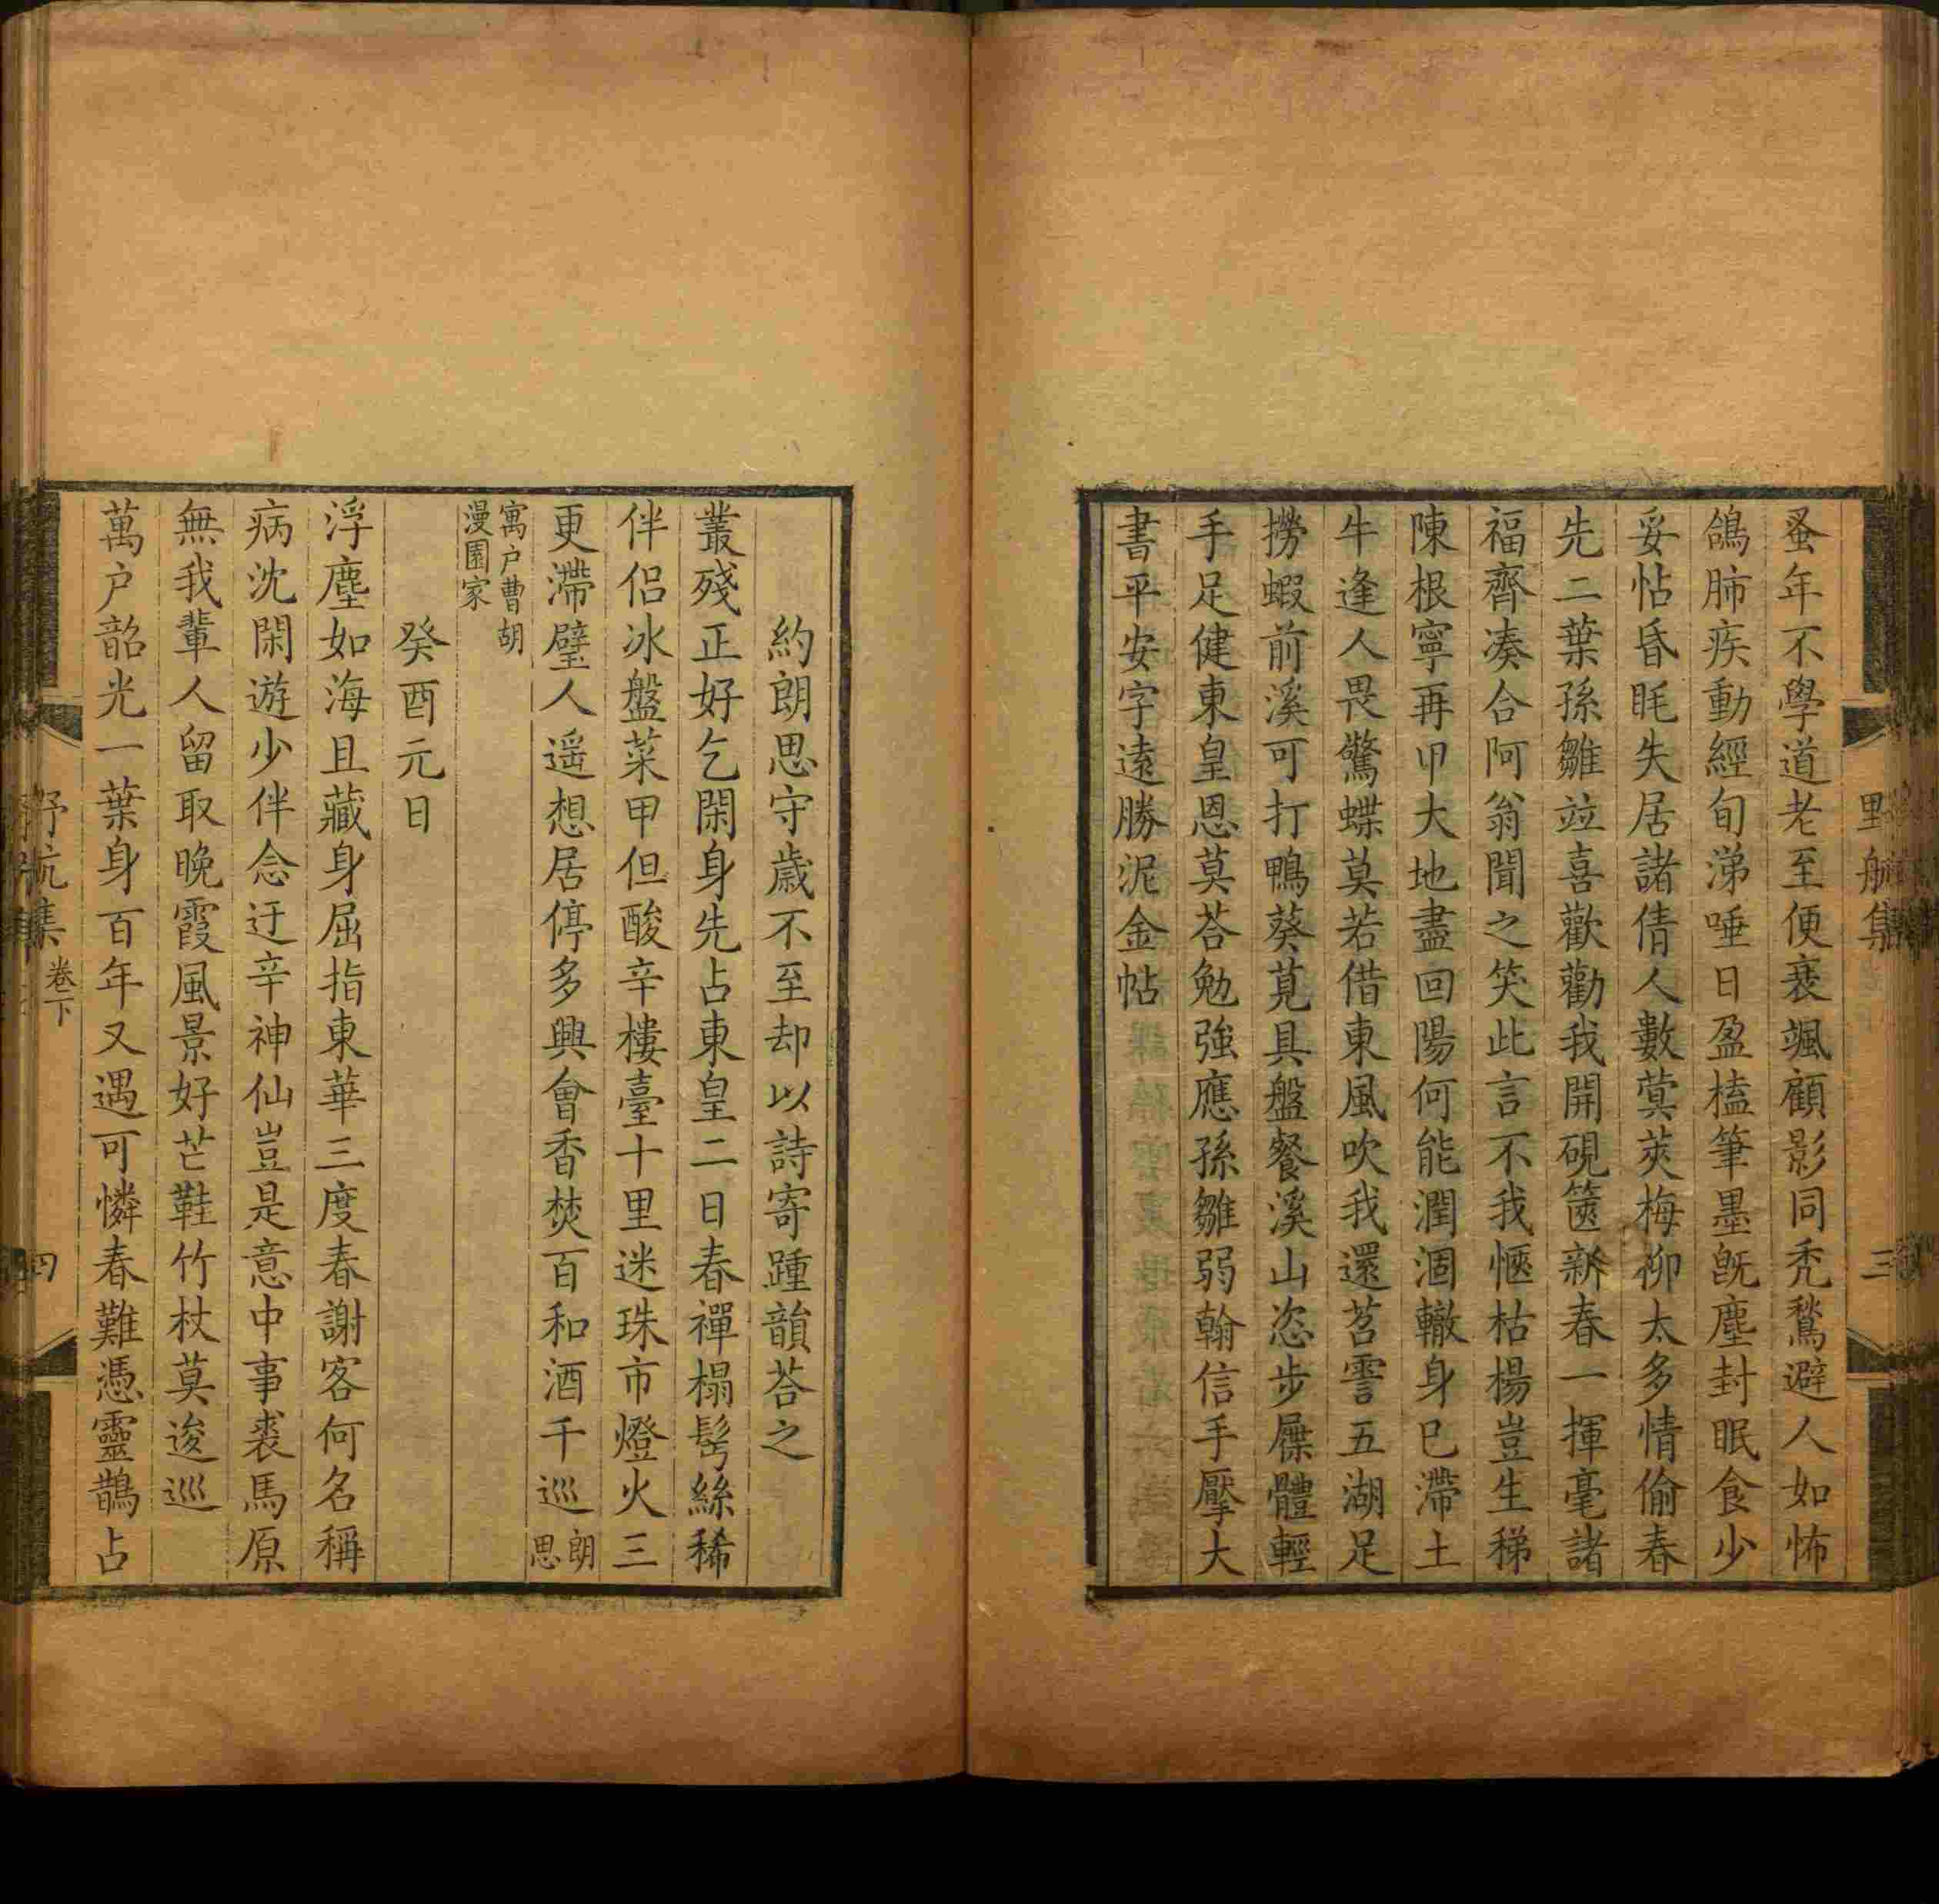 野航集
三
蚤年不學道老至便衰颯顧影同禿鶖避人如怖
鴿肺疾動經旬涕唾日盈榼筆墨旣塵封眠食少
妥帖昏眊失居諸倩人數蓂莢梅柳太多情偷春
先二葉孫雛竝喜歡勸我開硯篋新春一揮毫諸
福齊凑合阿翁聞之笑此言不我愜枯楊豈生稊
陳根寧再甲大地盡回陽何能潤涸轍身已滯土
牛逢人畏驚蝶莫若借東風吹我還苕霅五湖足
撈蝦前溪可打鴨葵莧具盤餐溪山恣步屧體輕
手足健東皇恩莫荅勉強應孫雛弱翰信手擪大
書平安字遠勝泥金帖
約朗思守歲不至却以詩寄踵韻荅之
叢殘正好乞閑身先占東皇二日春禪榻髩絲稀
伴侶冰盤菜甲但酸辛樓臺十里迷珠市燈火三
更滯璧人遥想居停多興會香焚百和酒千巡朗思
寓户曹胡
漫園家
癸酉元日
浮塵如海且藏身屈指東華三度春謝客何名稱
病沈閑遊少伴念迂辛神仙豈是意中事裘馬原
無我輩人留取晚霞風景好芒鞋竹杖莫逡巡
萬户韶光一葉身百年又遇可憐春難憑靈鵲占
野航集
卷下
四